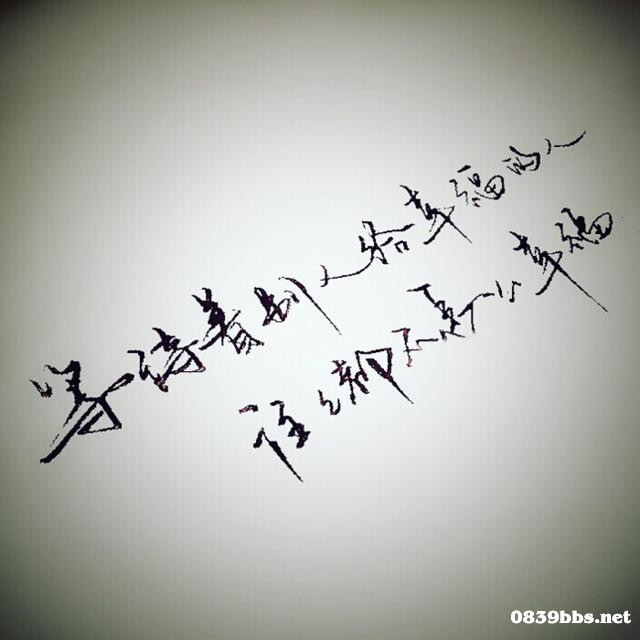 等待着别人给幸福的人
往往都不是人幸福
0839bbs.net